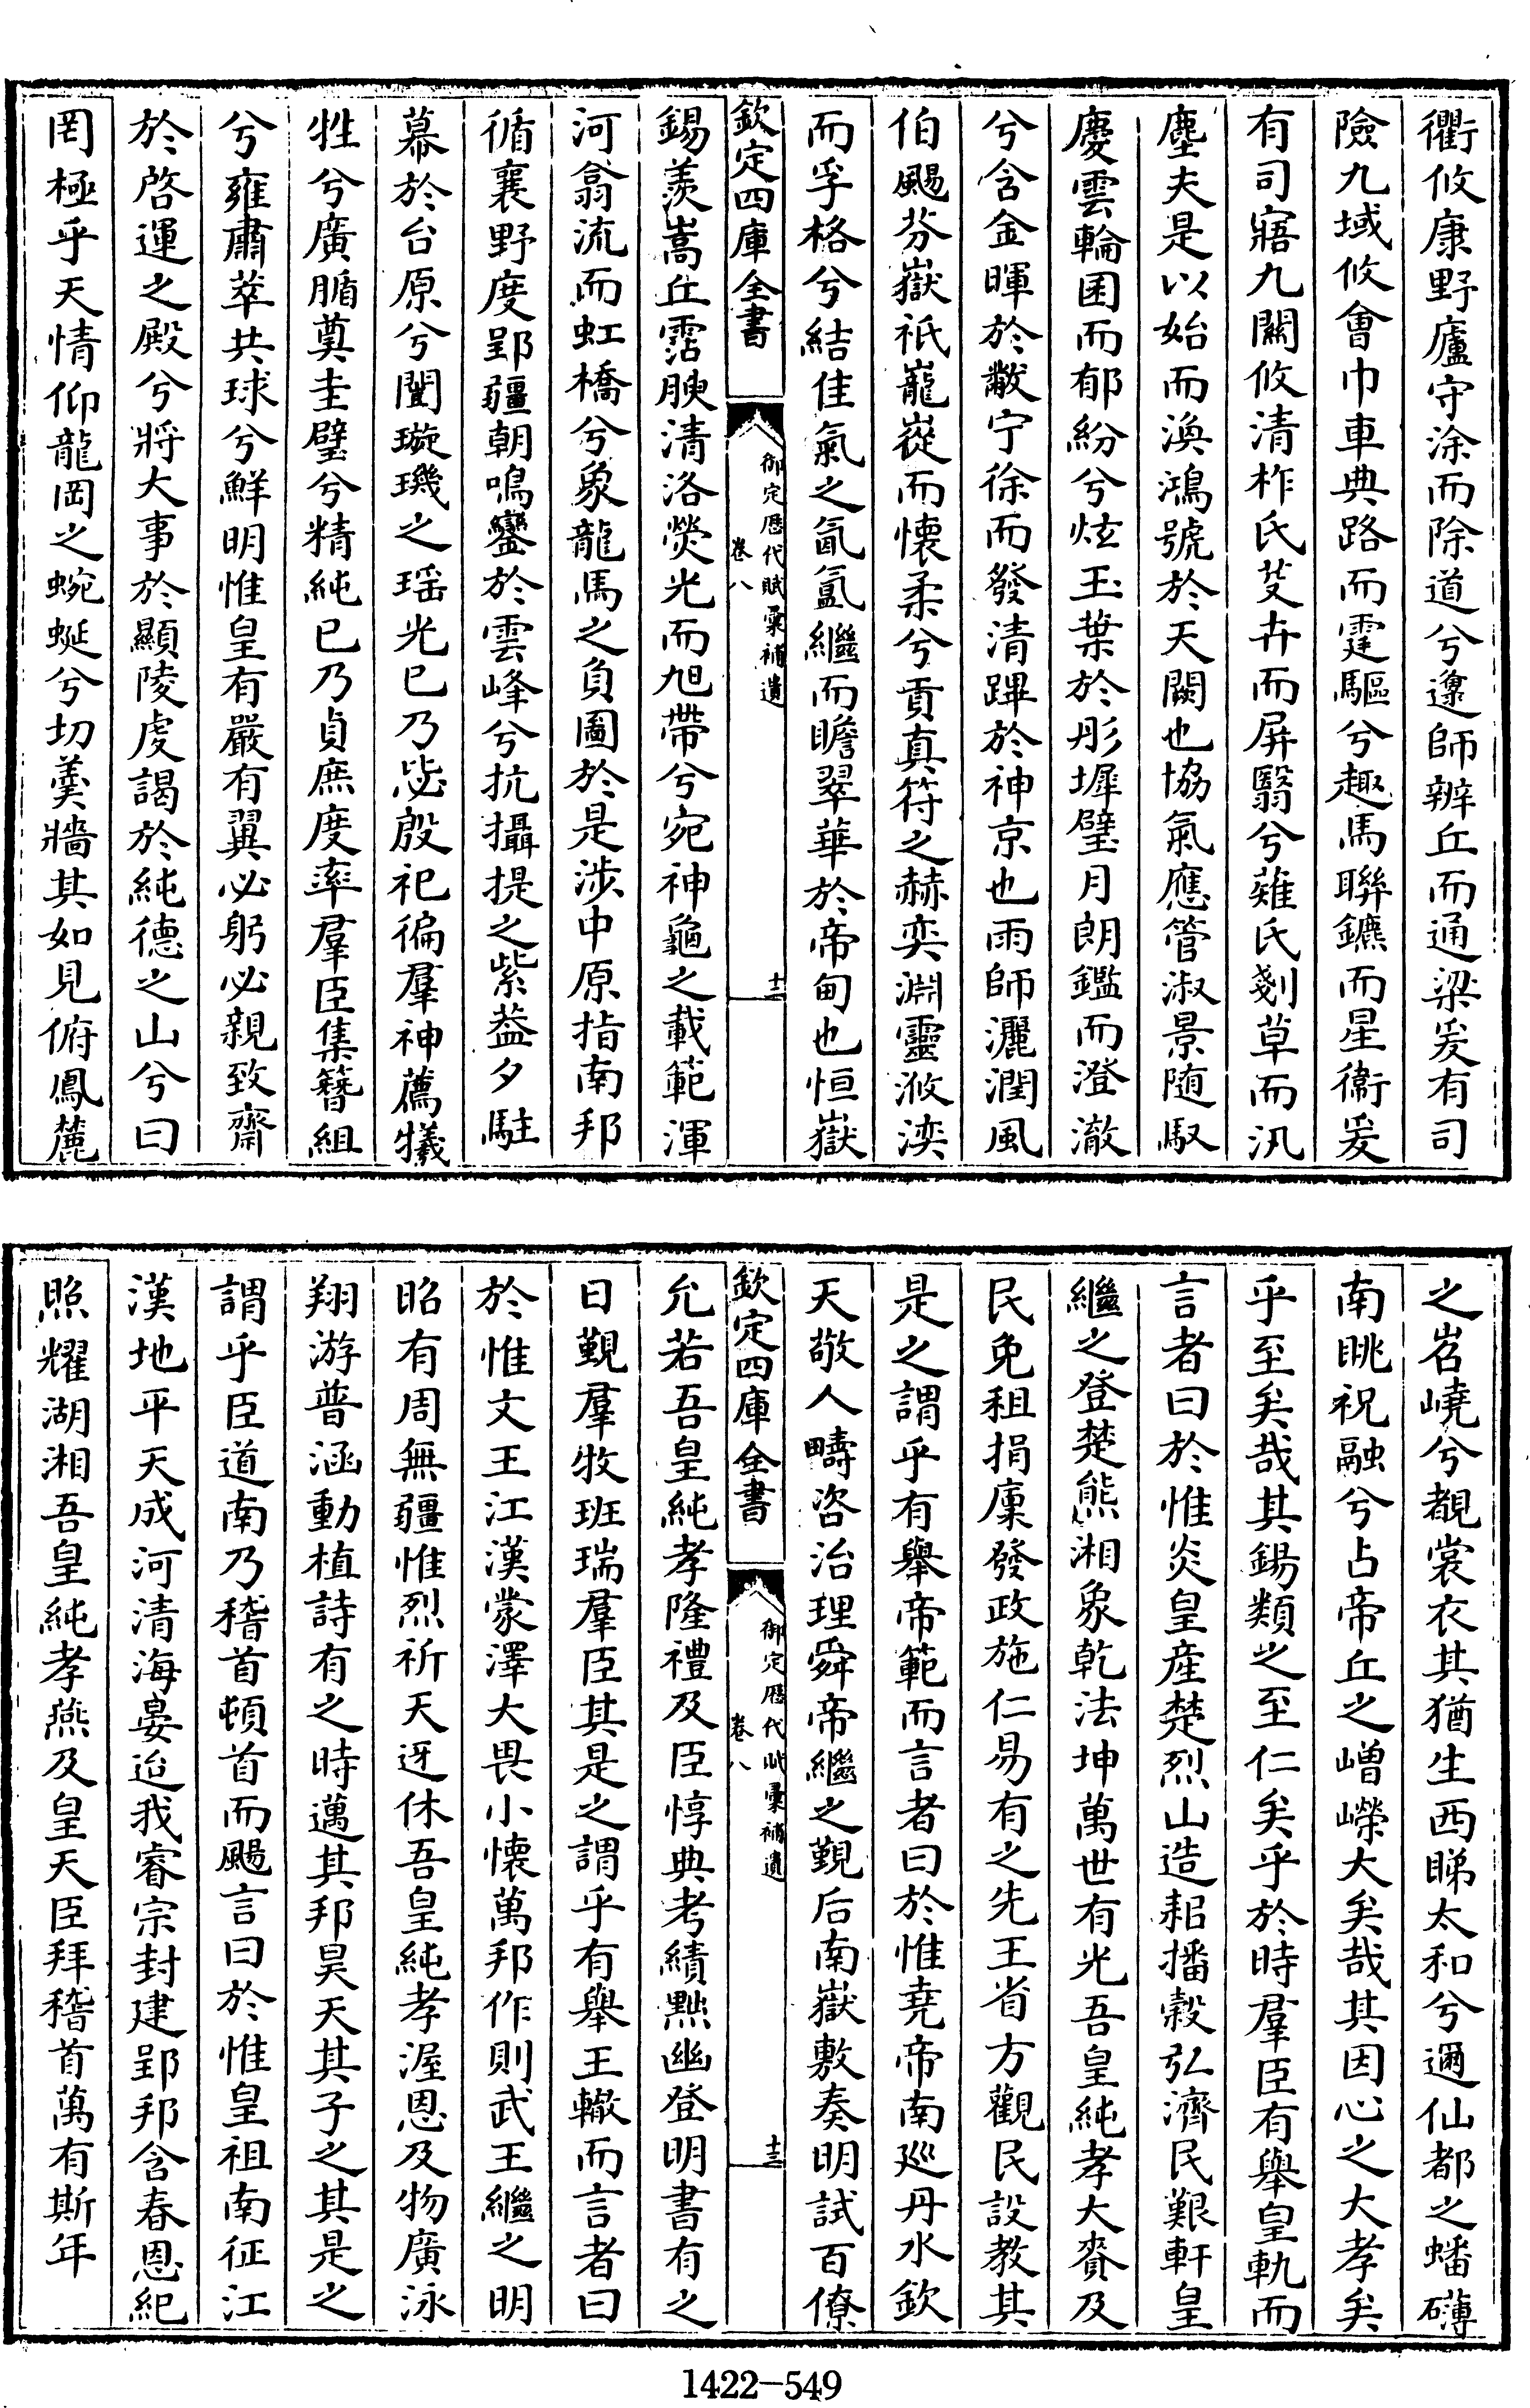 衢攸康野廬守涂而除道兮邍師辨丘而通梁爰有司
險九域攸會巾車典路而霆驅兮趣馬聯鑣而星衞爰
有司寤九關攸清柞氏芟卉而屏翳兮薙氏剗草而汛
塵夫是以始而渙鴻號於天闕也協氣應管淑景随馭
慶雲輪囷而郁紛兮炫玉葉於彤墀璧月朗鑑而澄澈
兮含金暉於黻宁徐而發清蹕於神京也雨師灑潤風
伯颺芬嶽祇巃嵸而懷柔兮貢真符之赫奕淵靈淤湙
而孚格兮結佳氣之氤氳繼而瞻翠華於帝甸也恒嶽
欽定四庫全書
御定歷代賦彙補遺
卷八
十二
錫羡嵩丘霑腴清洛熒光而旭帶兮宛神龜之載範渾
河翕流而虹橋兮象龍馬之負圖於是涉中原指南邦
循襄野度郢疆朝鳴鑾於雲峰兮抗攝提之紫葢夕駐
幕於台原兮闓璇璣之瑶光已乃毖殷祀徧羣神薦犧
牲兮廣腯奠圭璧兮精純已乃貞庶度率羣臣集簪組
兮雍肅萃共球兮鮮明惟皇有嚴有翼必躬必親致齋
於啓運之殿兮將大事於顯陵虔謁於純德之山兮曰
罔極乎天情仰龍岡之蜿蜒兮切羮牆其如見俯鳳麓
之岧嶢兮覩裳衣其猶生西睇太和兮邇仙都之蟠礴
南眺祝融兮占帝丘之嶒嶸大矣哉其因心之大孝矣
乎至矣哉其錫類之至仁矣乎於時羣臣有舉皇軌而
言者曰於惟炎皇産楚烈山造耜播穀弘濟民艱軒皇
繼之登楚熊湘象乾法坤萬世有光吾皇純孝大賚及
民免租捐廩發政施仁易有之先王省方觀民設教其
是之謂乎有舉帝範而言者曰於惟堯帝南廵丹水欽
天敬人疇咨治理舜帝繼之覲后南嶽敷奏明試百僚
欽定四庫全書
御定歷代賦彙補遺
卷八
十三
允若吾皇純孝隆禮及臣惇典考績黜幽登明書有之
日覲羣牧班瑞羣臣其是之謂乎有舉王轍而言者曰
於惟文王江漢蒙澤大畏小懷萬邦作則武王繼之明
昭有周無疆惟烈祈天迓休吾皇純孝渥恩及物廣泳
翔游普涵動植詩有之時邁其邦昊天其子之其是之
謂乎臣道南乃稽首頓首而颺言曰於惟皇祖南征江
漢地平天成河清海晏迨我睿宗封建郢邦含春恩紀
照耀湖湘吾皇純孝燕及皇天臣拜稽首萬有斯年
1422-549